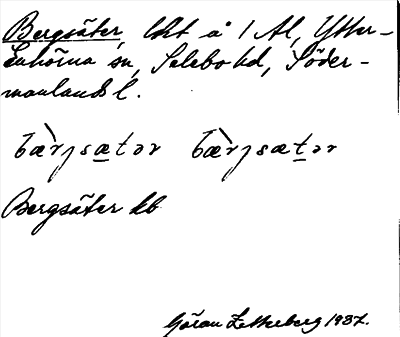 Bergsäter, lht å 1 Al, Ytter-
Enhörna sn, Selebo hd, Söder-
manlands l.
bæ̀rjsa̲tər bæ̀rjsæt̲ər
Bergsäter kb
Göran Zetterberg 1937.